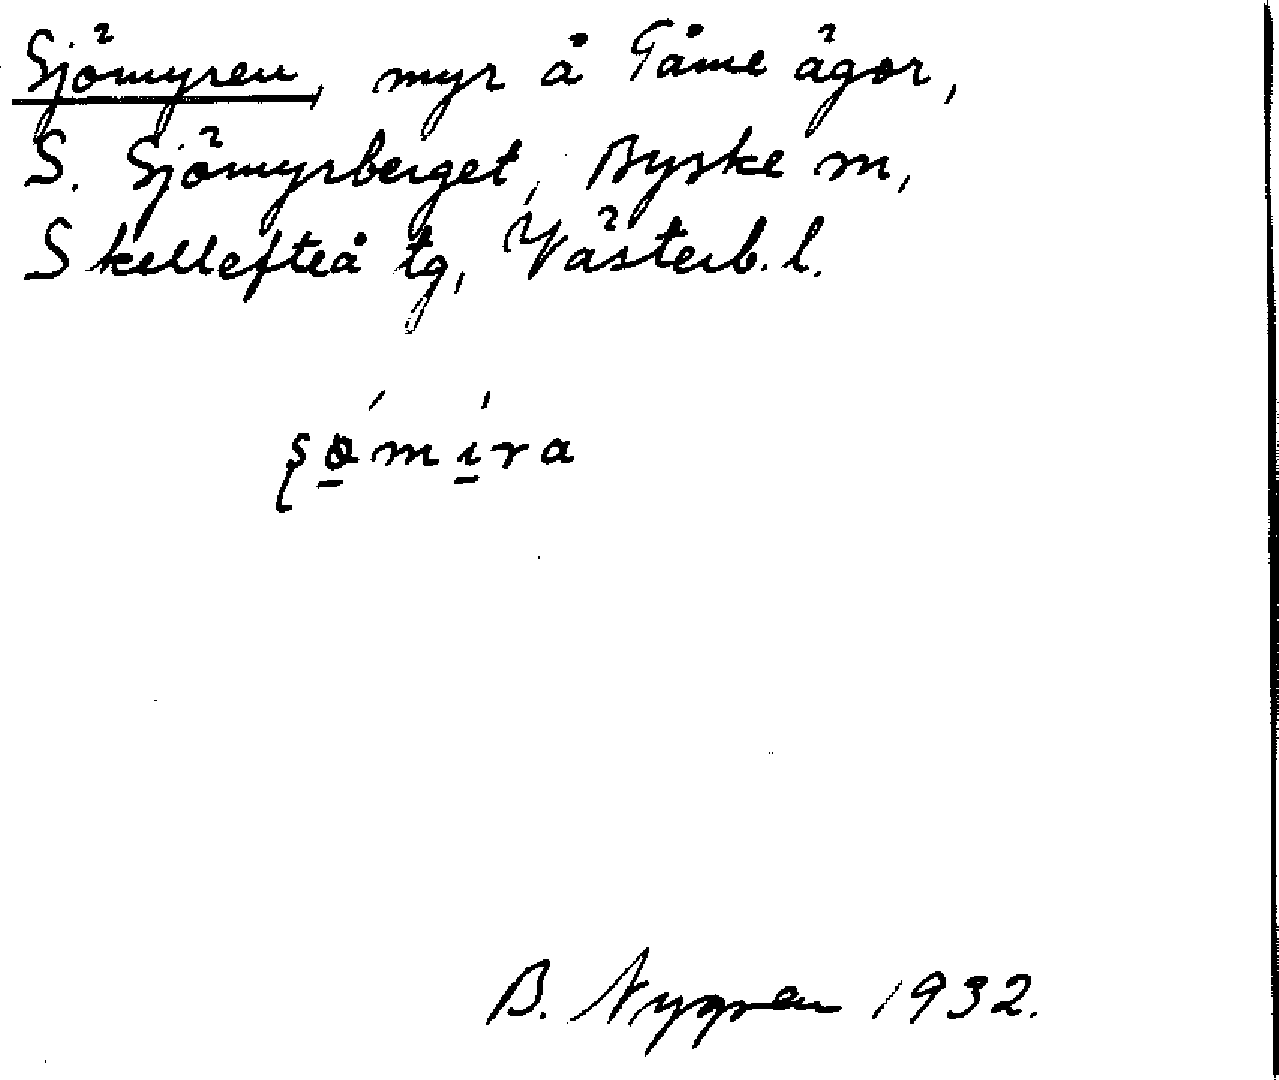 Sjömyren, myr å Tåme ägor,
S. Sjömyrberget, Byske sn,
Skellefteå tg, Västerb. l.
ʂǿ̱mí̱ra
B. Nygren 1932.